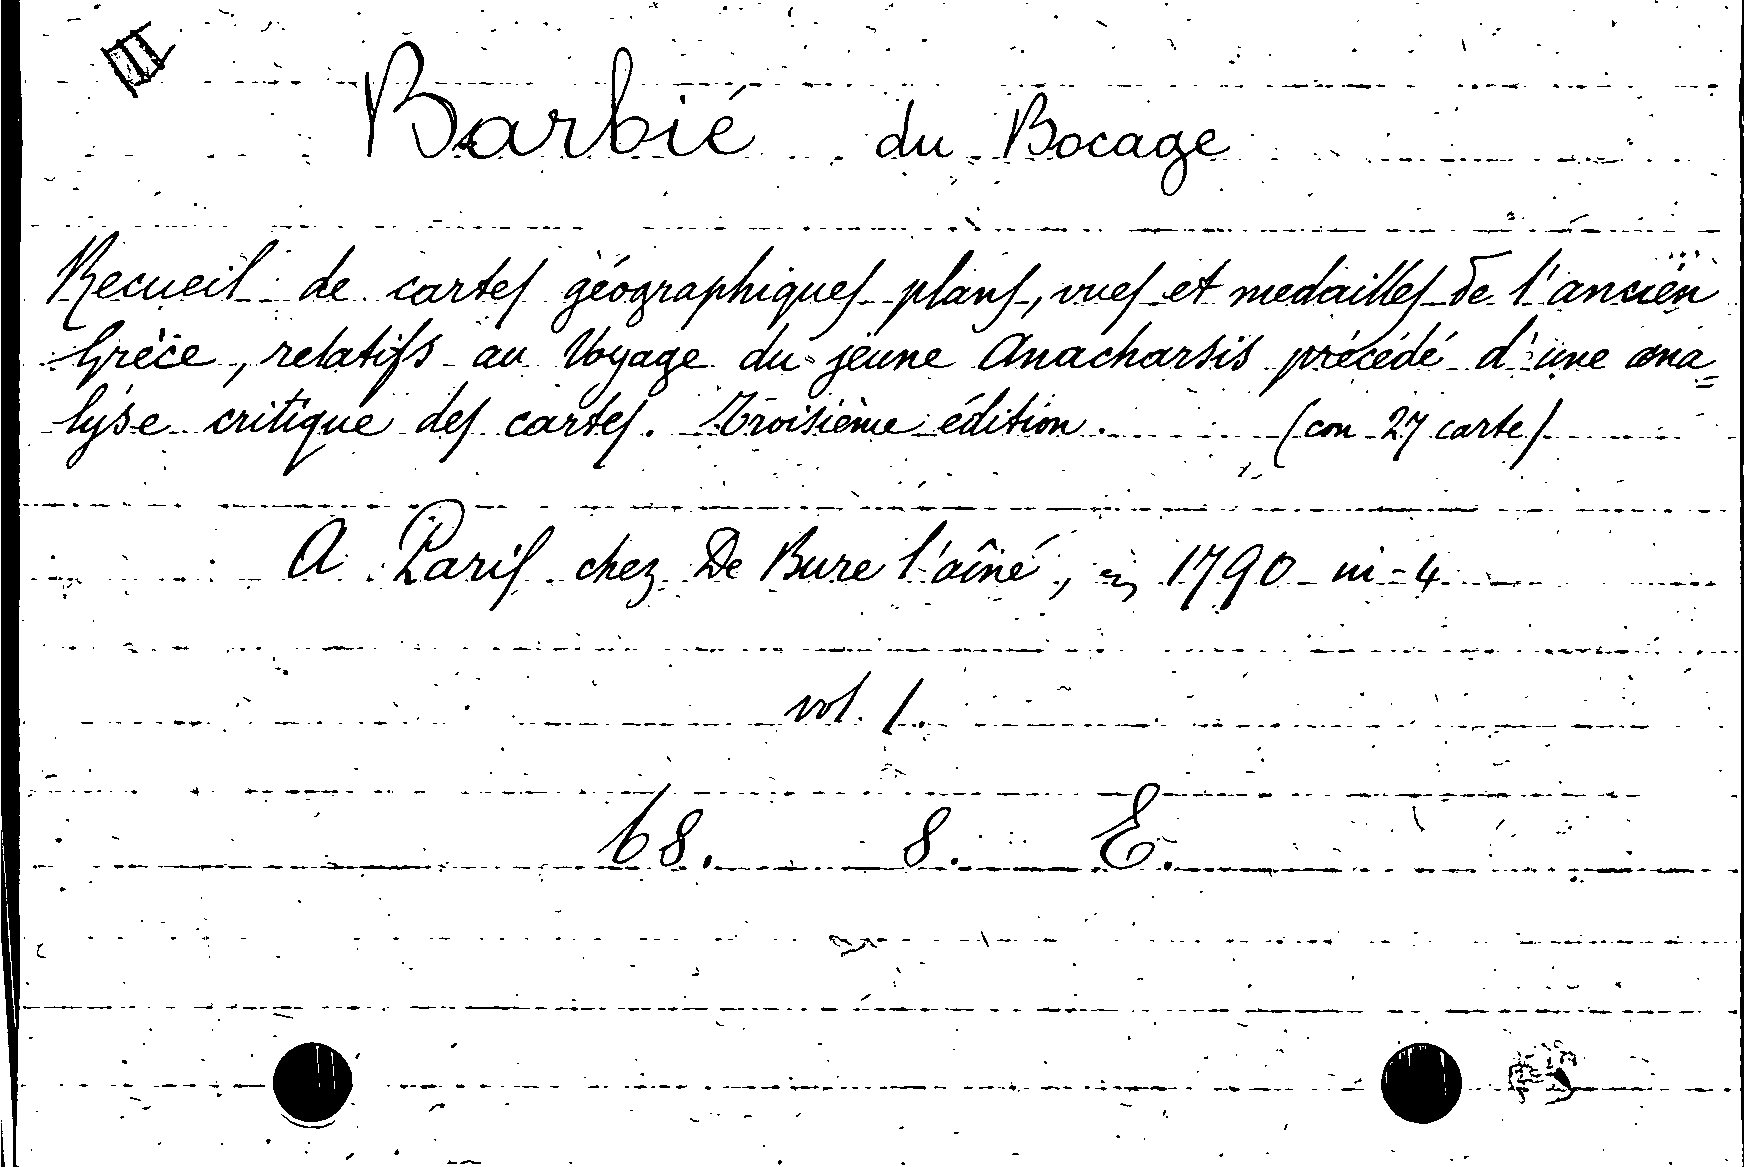 III
Barbié du Bocage
Recueil de cartes géographiques plans, vues et medailles de l'ancien
Grèce, relatifs au Voyage du jeune Anacharsis précédé d'une ana=
lyse critique des cartes. Troisième édition. (con 27 carte)
A Paris chez De Bure l'aîné, 1790 in-4
vol. 1.
68. 8. E.